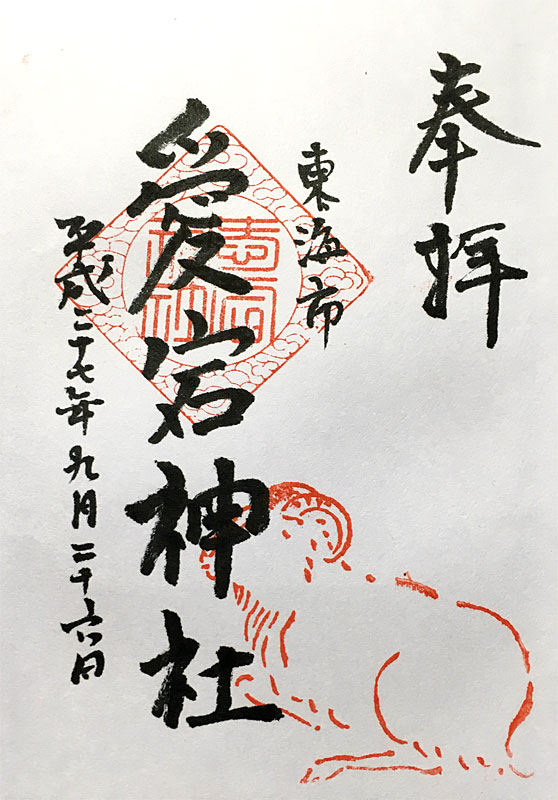 奉拝
東海市
愛宕神社
平成二十七年九月二十六日